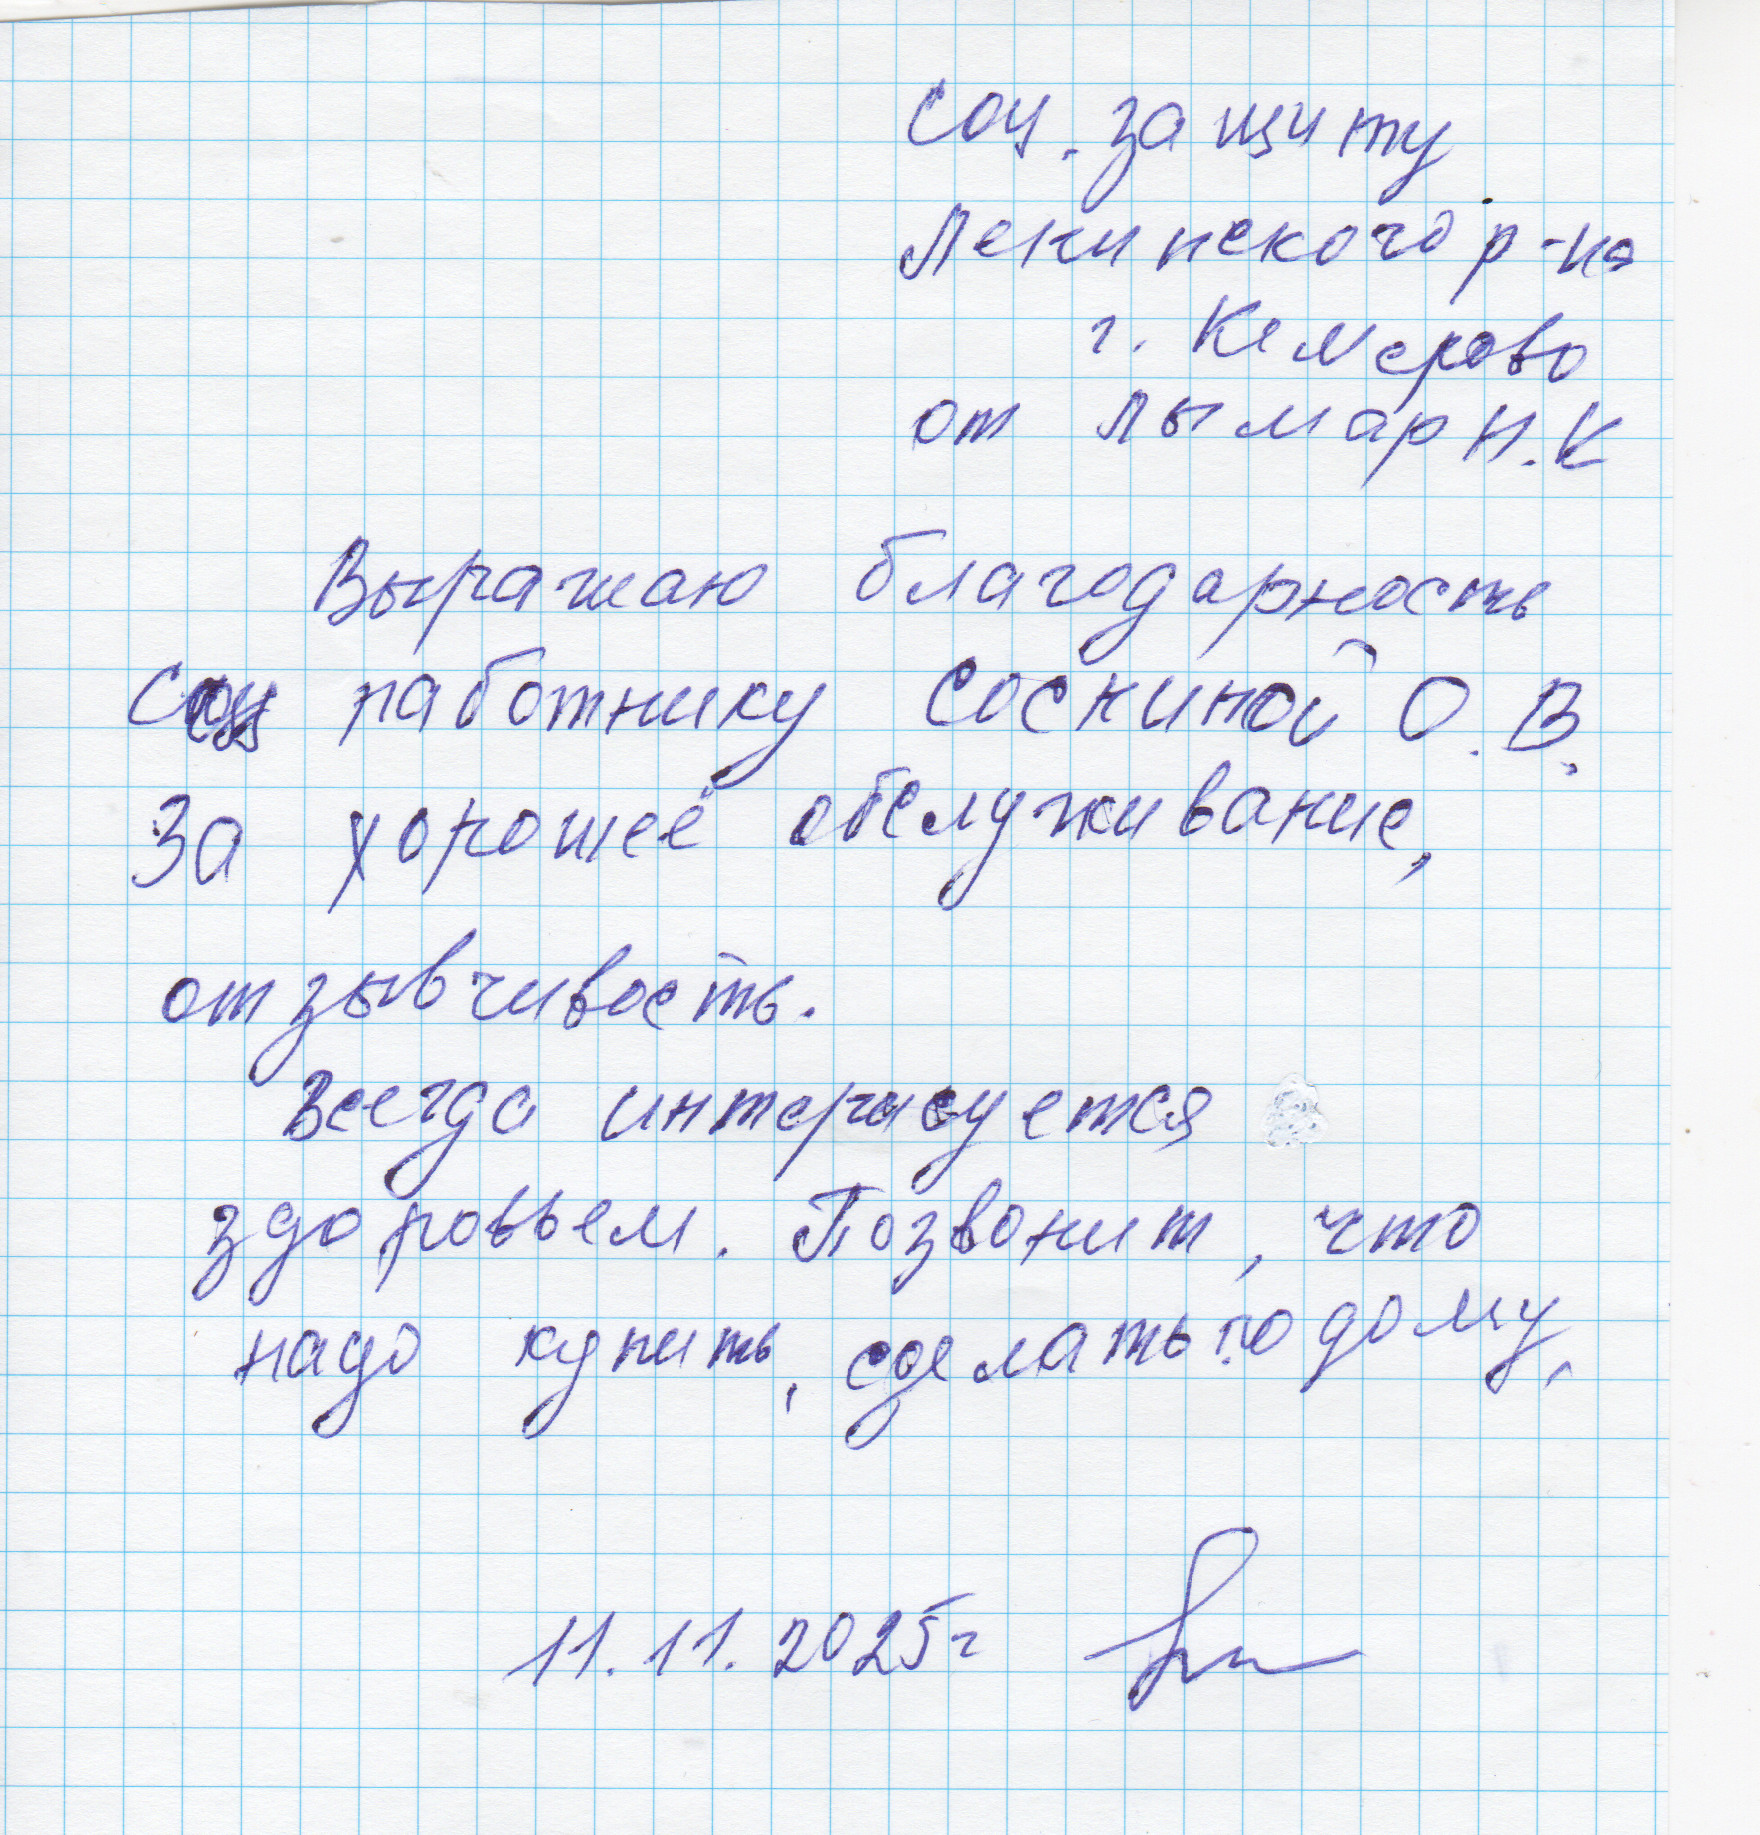 Соц. защиту
Ленинского р-на
г. Кемерово
от Лымар Н.К
Выражаю благодарность
соц работнику Соскиной О.В.
за хорошее обслуживание,
отзывчивость.
Всегда интересуется
здоровьем. Позвонит, что
надо купить, сделать по дому,
11.11.2025г